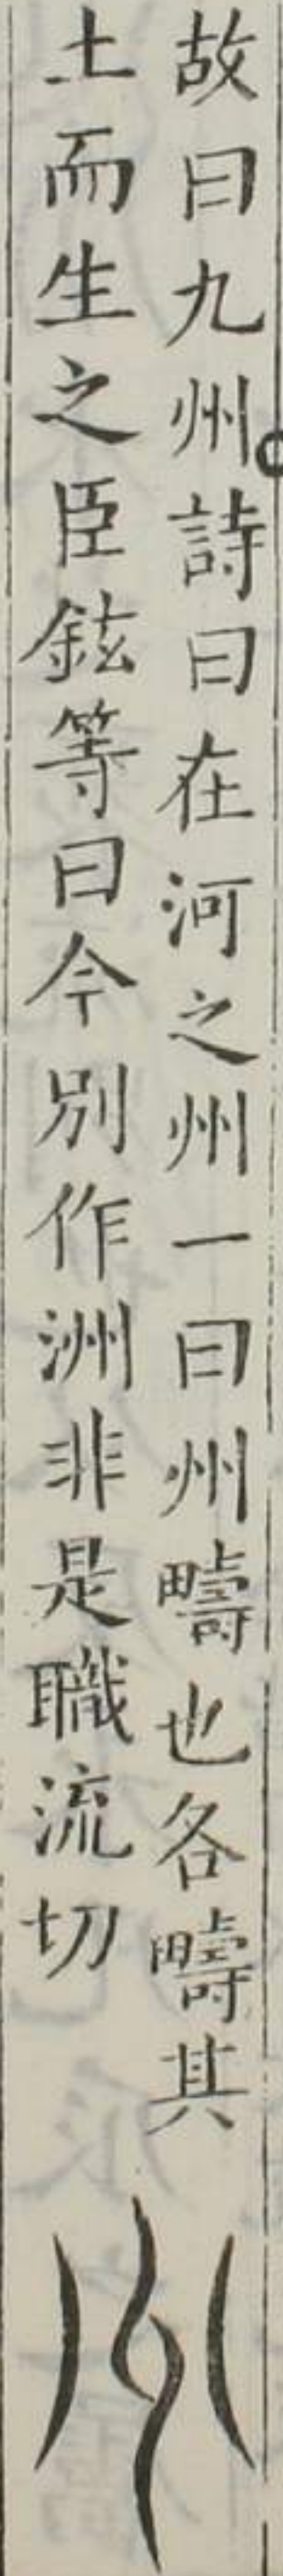 故曰九州詩曰在河之州一曰州疇也各疇其
土而生之臣鉉等曰今別作洲非是職流切